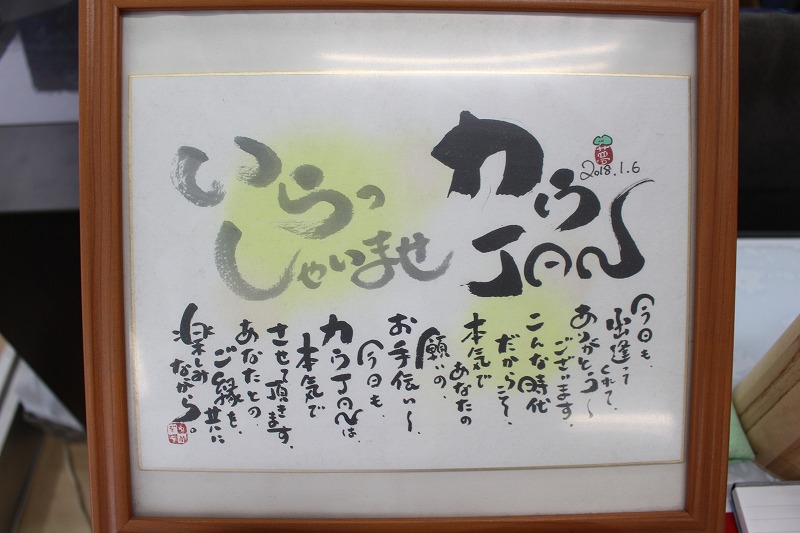 カうJAN
2018.1.6
いらっ
しゃいませ
今日も、
出逢って
くれて、
ありがとう〜
ございます。
こんな時代
だからこそ、
本気で
あなたの
願いの、
お手伝い〜、
今日も、
カうJANは、
本気で
させて頂きます。
あなたとの、
ご縁を、
共に
楽しみ
ながら。